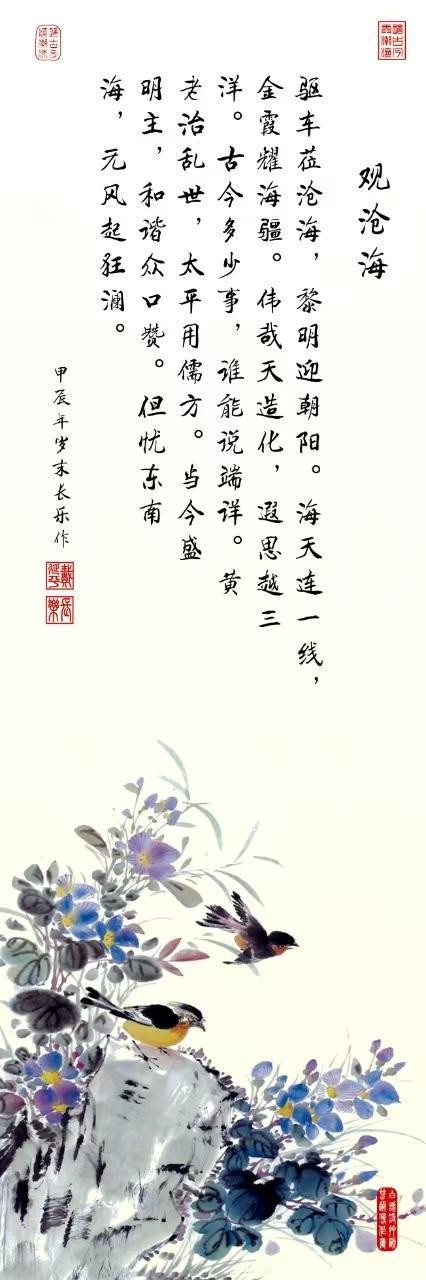 观沧海
驱车莅沧海，黎明迎朝阳。海天连一线，
金霞耀海疆。伟哉天造化，遐思越三
洋。古今多少事，谁能说端详。黄
老治乱世，太平用儒方。当今盛
明主，和谐众口赞。但忧东南
海，无风起狂澜。
甲辰年岁末长乐作
長樂